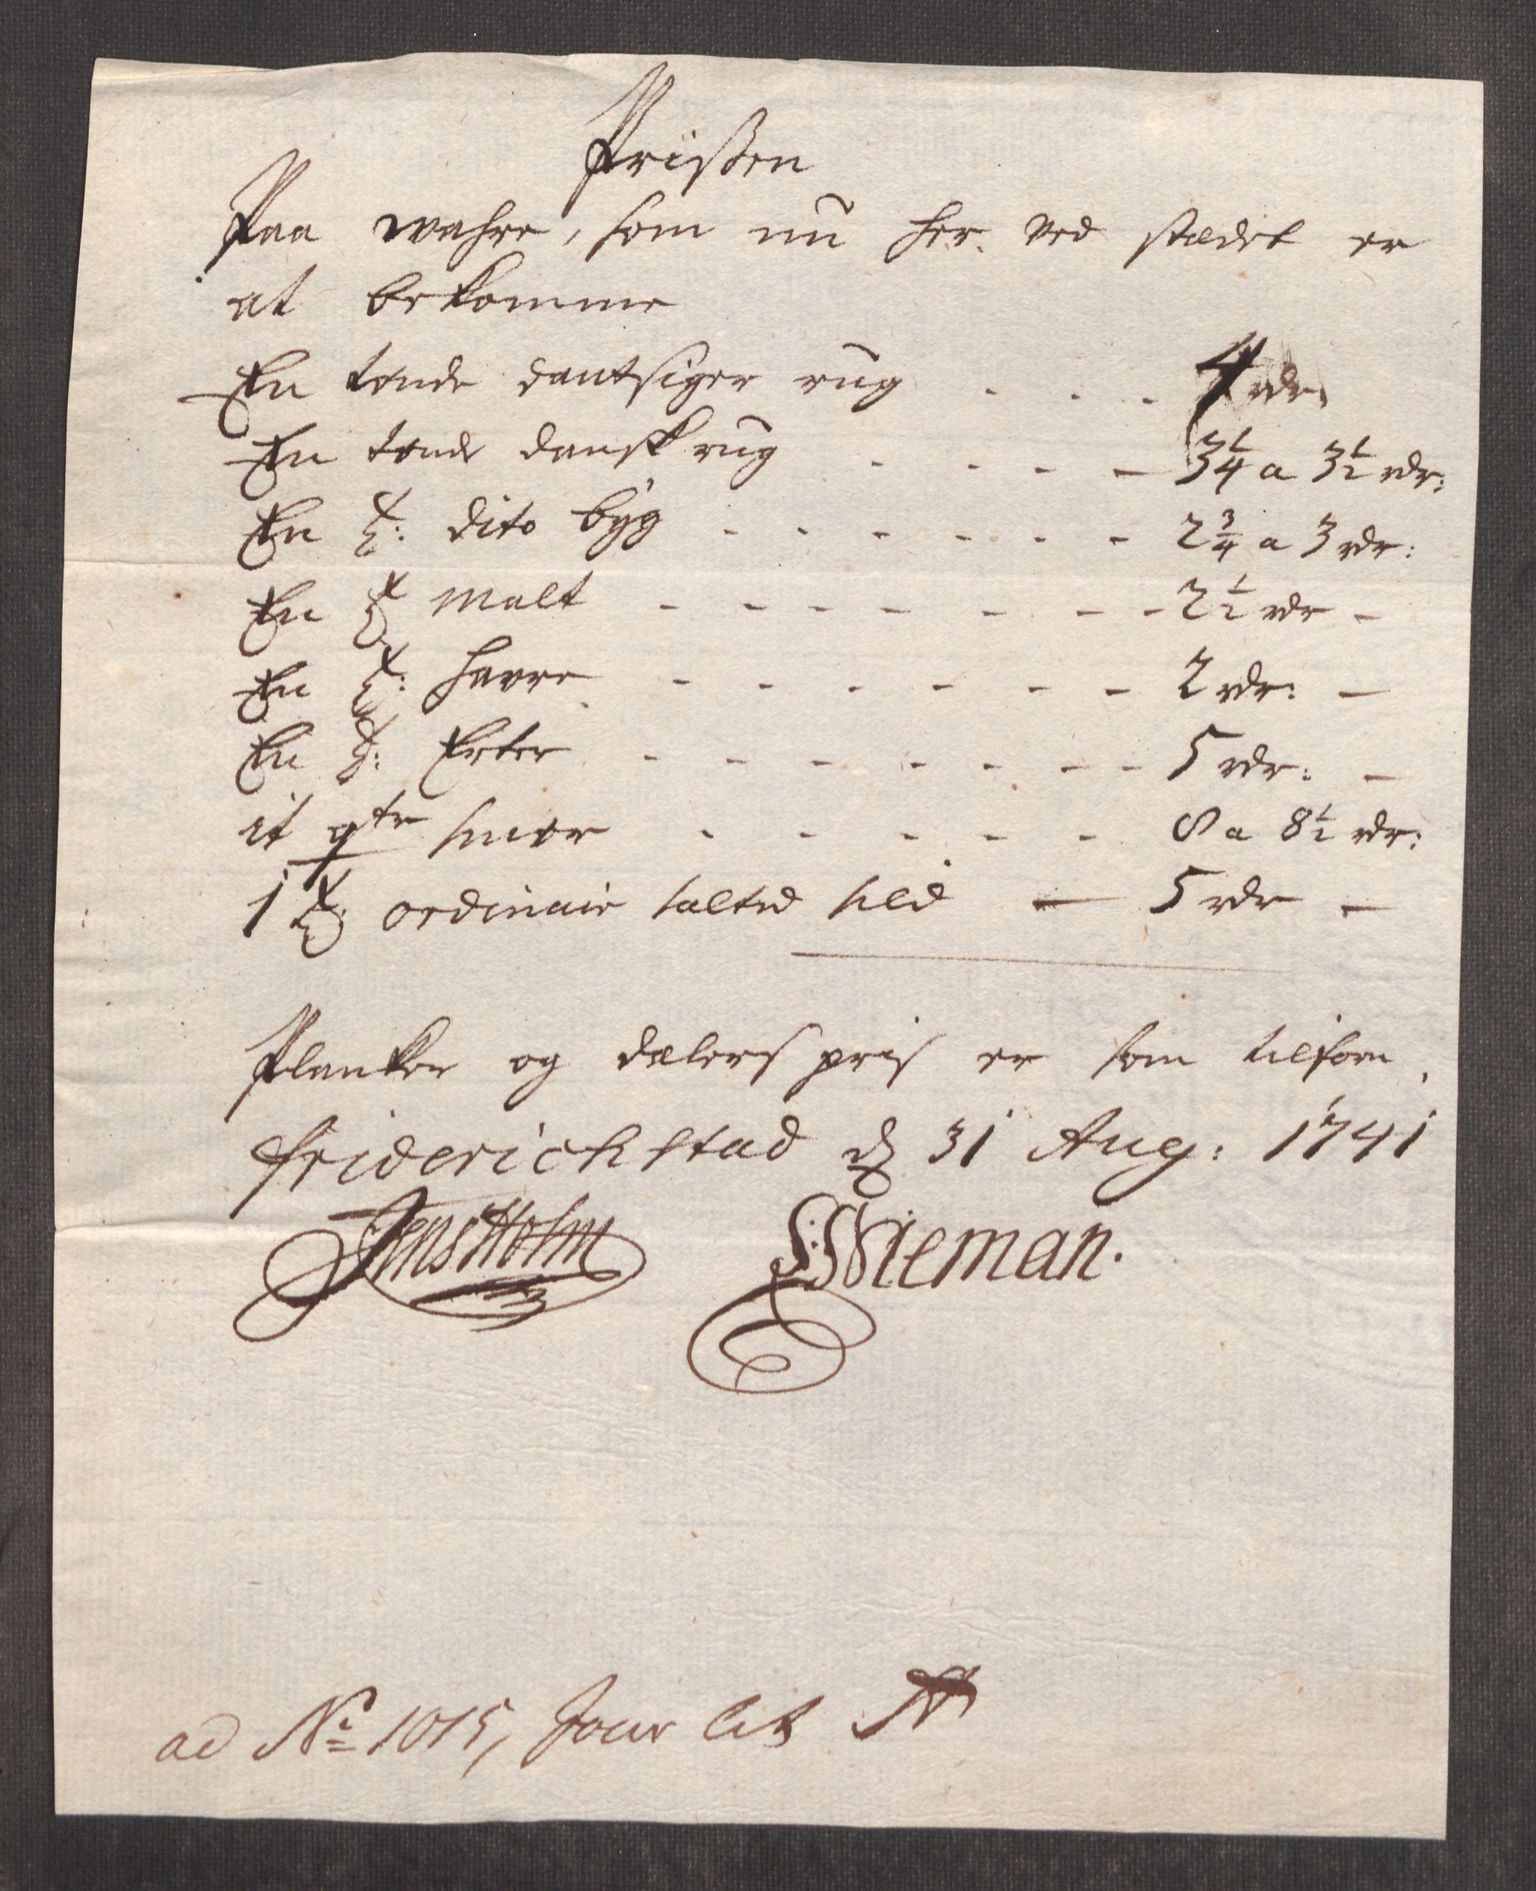 Prisßen
Paa wahre, som nu her ved stædet er
at bekomme
En tønde dantsiger rug . . . 4 rdr,
En tønde dansk rug - - - - 3 1/4 a 3 1/2 rdr:
En t: dito byg - - - - - - 2 3/4 a 3 rdr:
En t malt - - - - - - - 2 1/2 rdr -
En t: havre - - - - - - 2 rdr: -
En t: Erter - - - - - - - 5 rdr: -
it qtr smør - - - - - 8 a 8 1/2 rdr:
1 t: ordinair salted sild — 5 rdr -
Planker og dælers pris er som tilforn.
Friderichstad d 31 Aug: 1741
Jens Holm S: Wieman.
ad No 1015, Jour lit